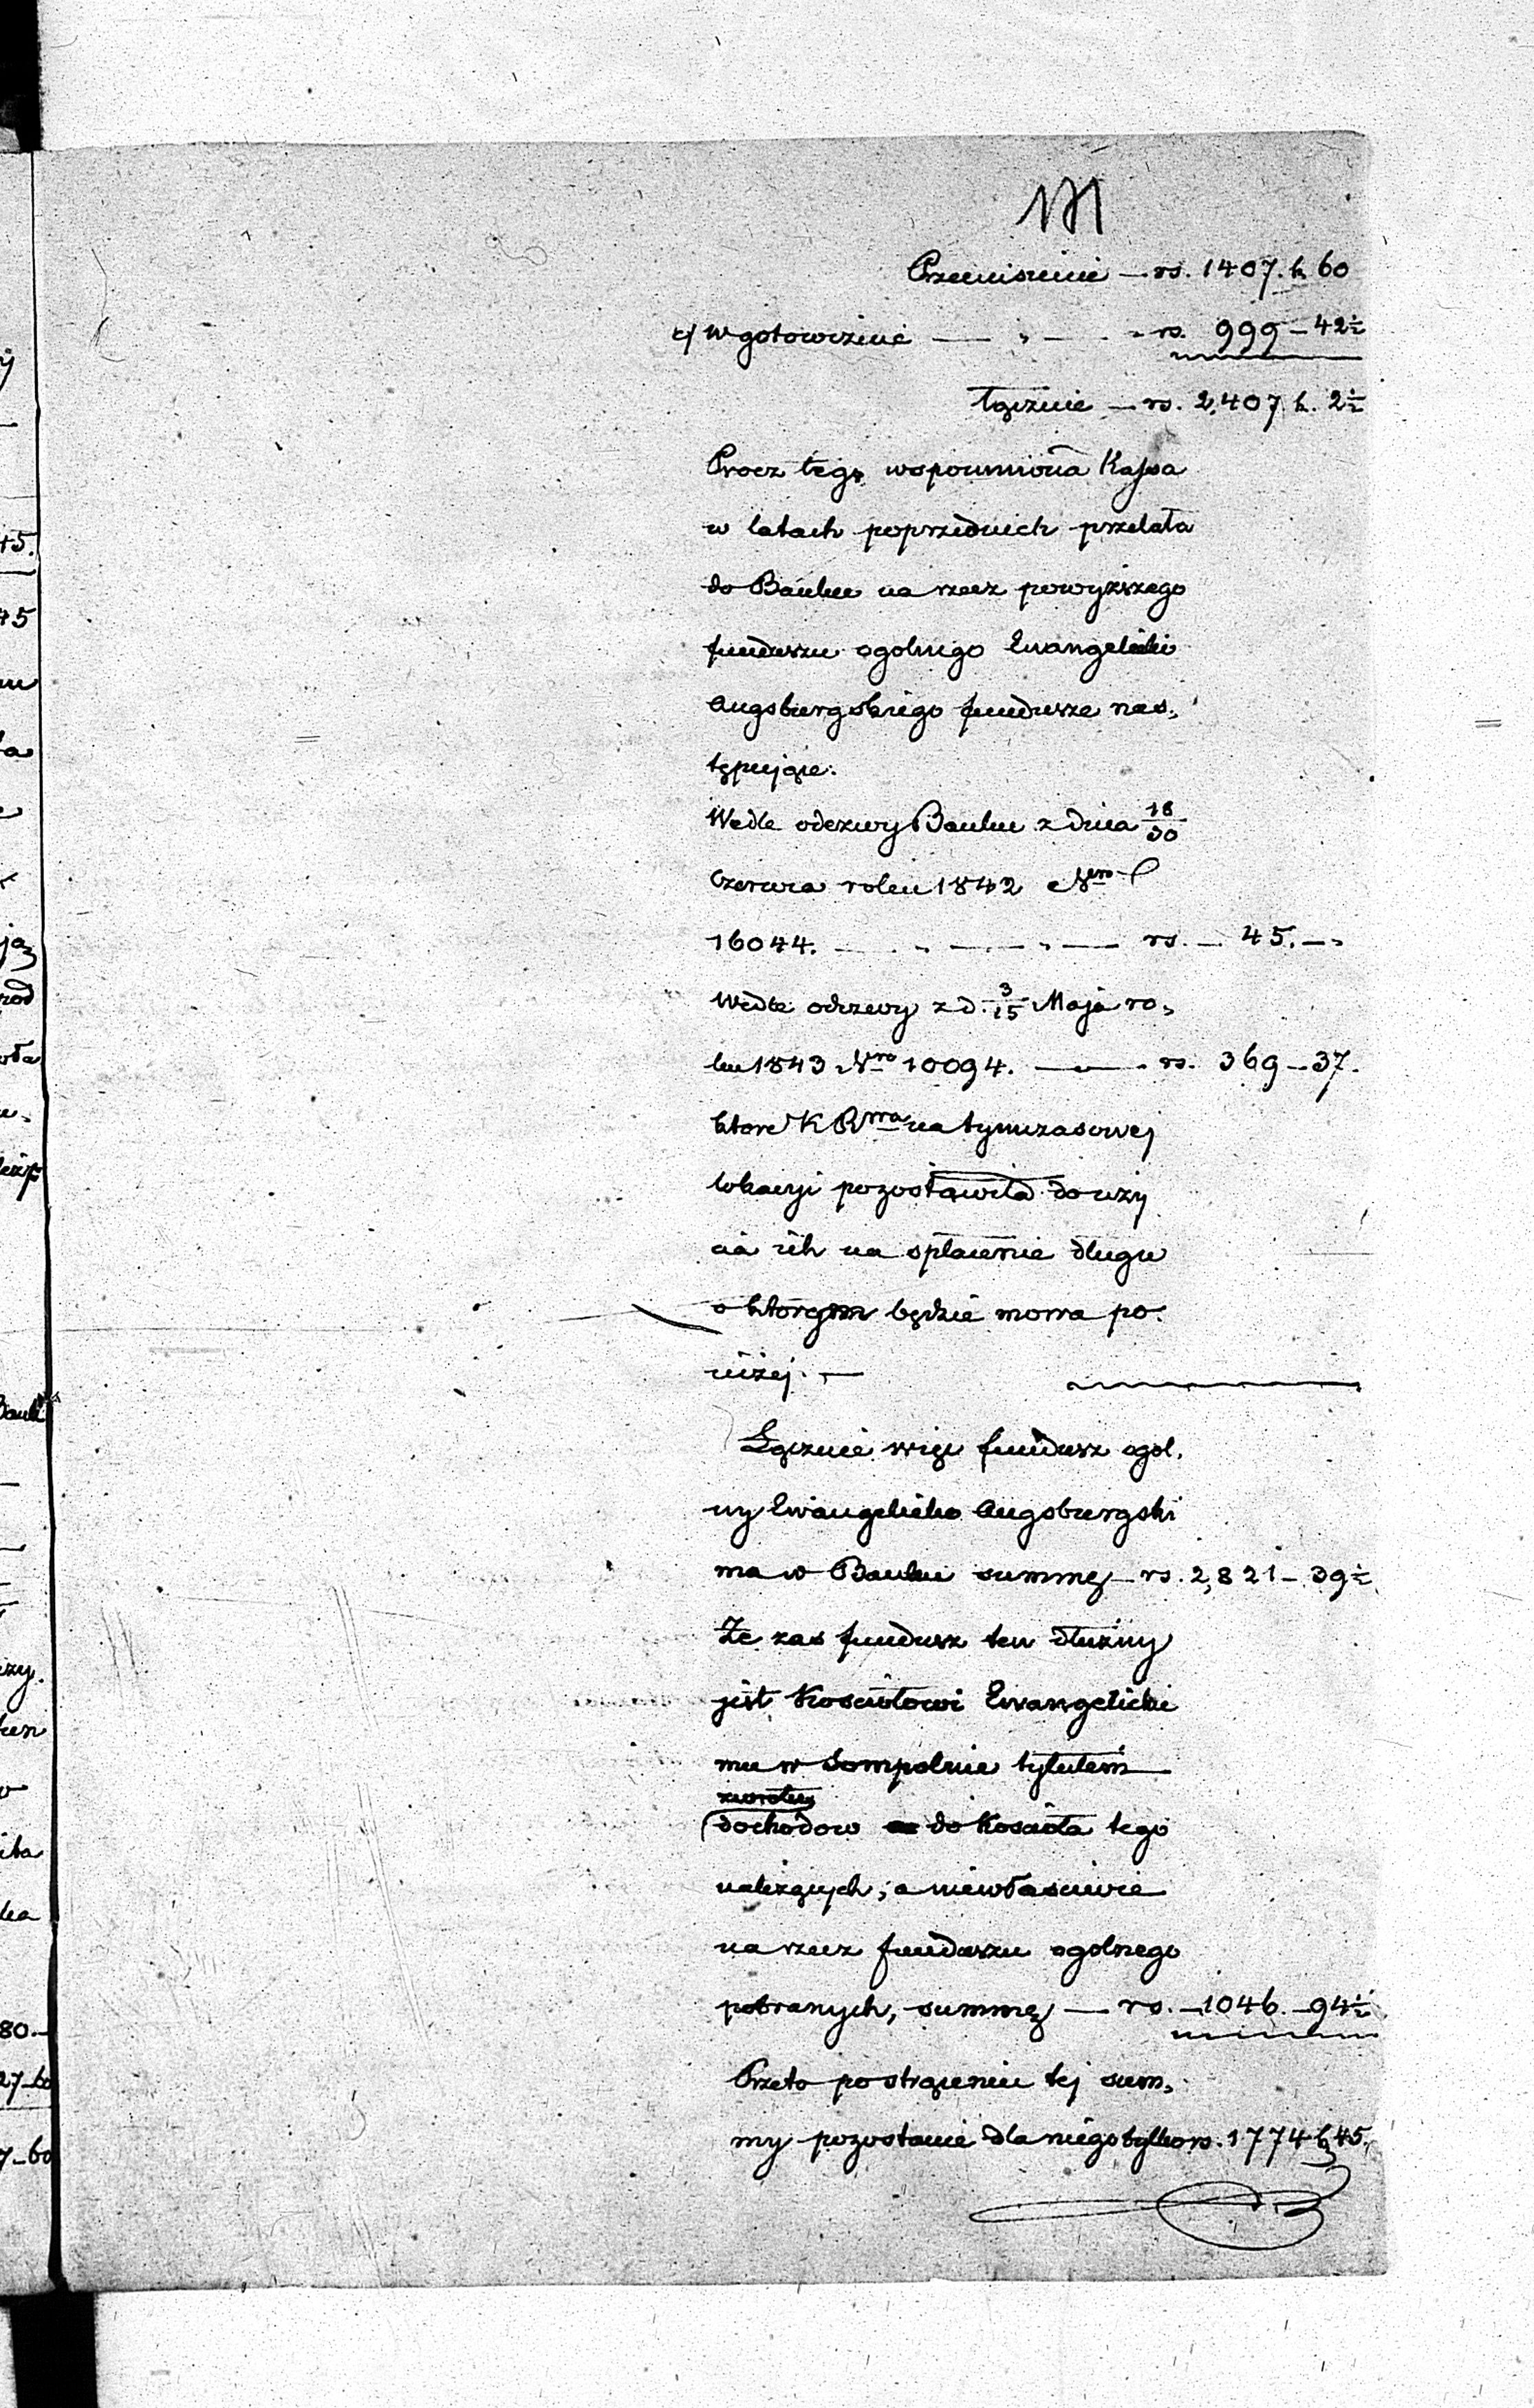 Przeniesienie — rs. 1407. k. 60
c/ w gotowiznie — „ — rs. 999 – 42½
łącznie — rs. 2,407. k. 2½
Procz tego, wspomniona Kassa
w latach poprzednich przelała
do Banku na rzecz powyższego
funduszu ogolnego Ewangelicko
Augsburgskiego fundusze nas„
tępujące:
Wedle odezwy Banku z dnia 18/30
Czerwca roku 1842 Nero
16044. — „ — „ — rs. — 45. – „
Wedle odezwy z d. 3/15 Maja ro„
ku 1843 Nro 10094. — rs. 369 – 37.
ktore K R na tymczasowej
lokacyi pozostawiła do uży
cia ich na spłacenie długu
o ktorym będzie mowa po„
niżej. —
Łącznie więc fundusz ogol„
ny Ewangelicko Augsburgski
ma w Banku summę – rs. 2,821 – 39½
Że zas fundusz ten dłużny
jest Kosciołowi Ewangelickie
mu w Sompolnie tytułem
zwrotu
dochodow do Kosciola tego
należących, a niewłasciwie
na rzecz funduszu ogolnego
pobranych, summę — rs. – 1046. – 94½
Przeto po strąceniu tej sum„
my pozostanie dla niego tylko rs. 1774 k 45.